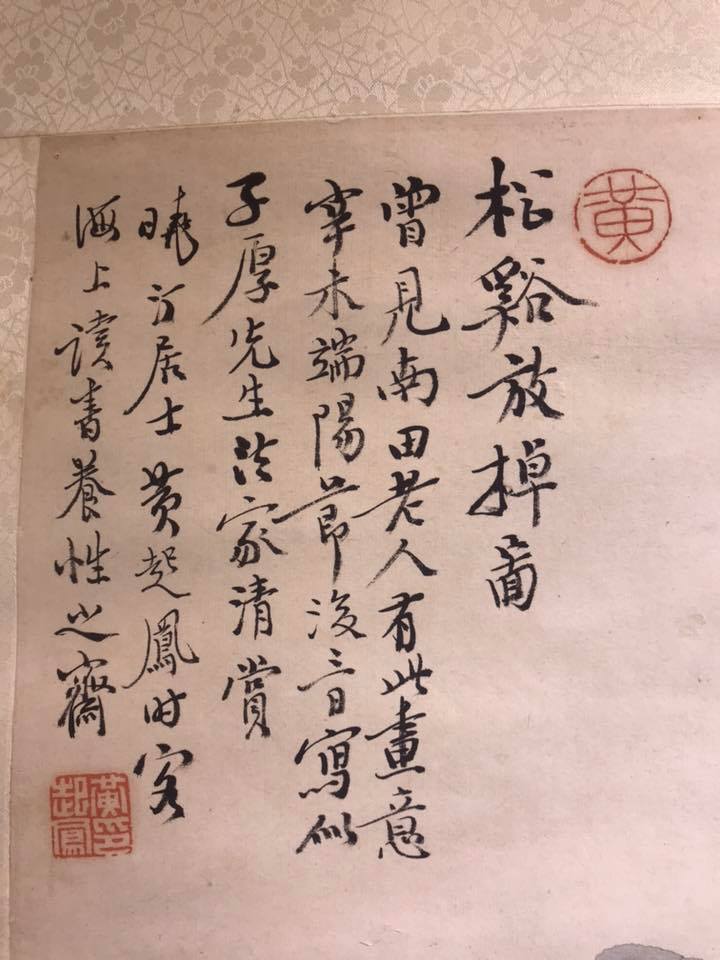 黃
松谿放掉啚
曾見南田老人有此畫意
辛未端陽節後三日寫似
子厚先生法家清賞
曉汀居士黄起鳳时客
海上讀書養性之齋
黃印起鳳